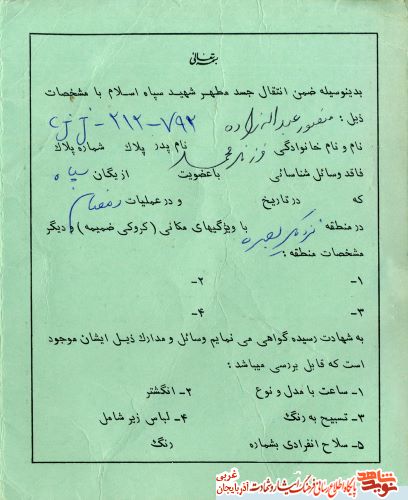 بسمه تعالی
بدینوسیله ضمن انتقال جسد مطهر شهید سپاه اسلام با مشخصات
ذیل : منصور عبداله زاده ۷۹۲-۲۱۲-
نام و نام خانوادگی فرزند محمد نام پدر پلاک شماره پلاک
فاقد وسائل شناسائی باعضویت از یگان سپاه
که در تاریخ و در عملیات رمضان
در منطقه نزدیکی بصره با ویژگیهای مکانی (کروکی ضمیمه) و دیگر
مشخصات منطقه :
۱- ۲-
۳- ۴-
به شهادت رسیده گواهی می نمایم وسائل و مدارک ذیل ایشان موجود
است که قابل بررسی میباشد :
۱- ساعت با مدل و نوع ۲- انگشتر
۳- تسبیح به رنگ ۴- لباس زیر شامل
۵- سلاح انفرادی بشماره رنگ
نوید شاهد
پایگاه اطلاع رسانی فرهنگ ایثار و شهادت آذربایجان غربی